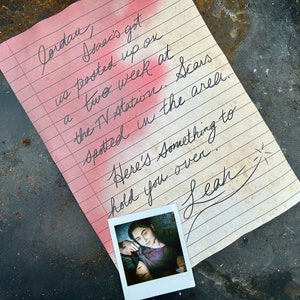 Jordan,
Isaac's got
us posted up on
a two week at
the TV station. Scars
spotted in the area.
Here's something to
hold you over.
Leah